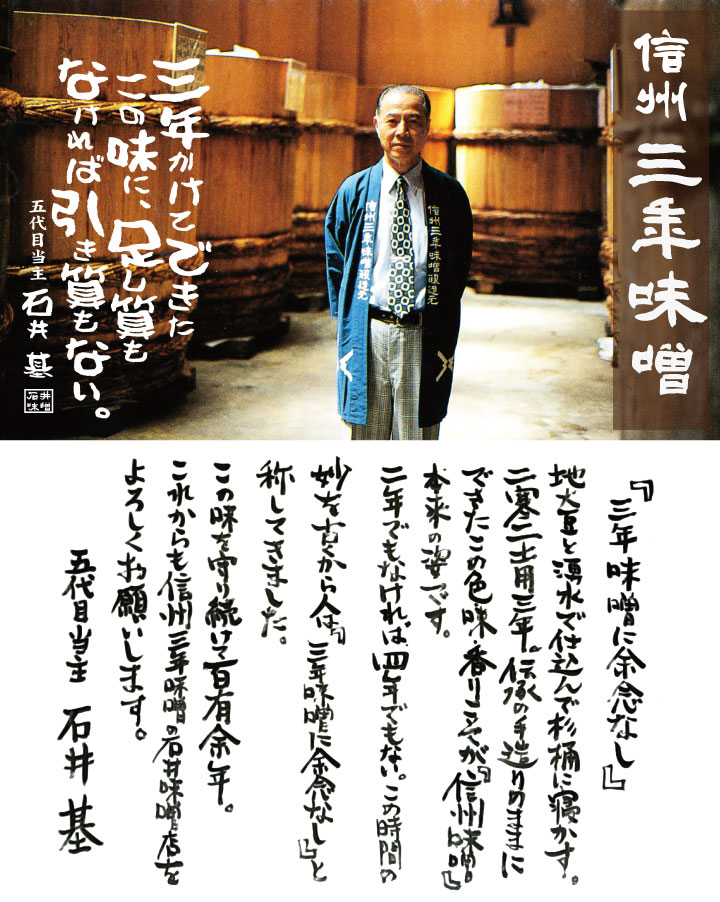 信州 三年味噌
三年かけてできた
この味に、足し算も
なければ引き算もない。
五代目当主 石井 基
石井
味噌
信州三年味噌醸造元
信州三年味噌醸造元
『三年味噌に余念なし』
地大豆と湧水で仕込んで杉桶に寝かす。
二寒二土用三年。伝承の手造りのままに
できたこの色味・香りこそが、『信州味噌』
本来の姿です。
二年でもなければ、四年でもない。この時間の
妙を古くから人は、『三年味噌に余念なし』と
称してきました。
この味を守り続けて百有余年。
これからも信州三年味噌の石井味噌店を
よろしくお願いします。
五代目当主 石井 基